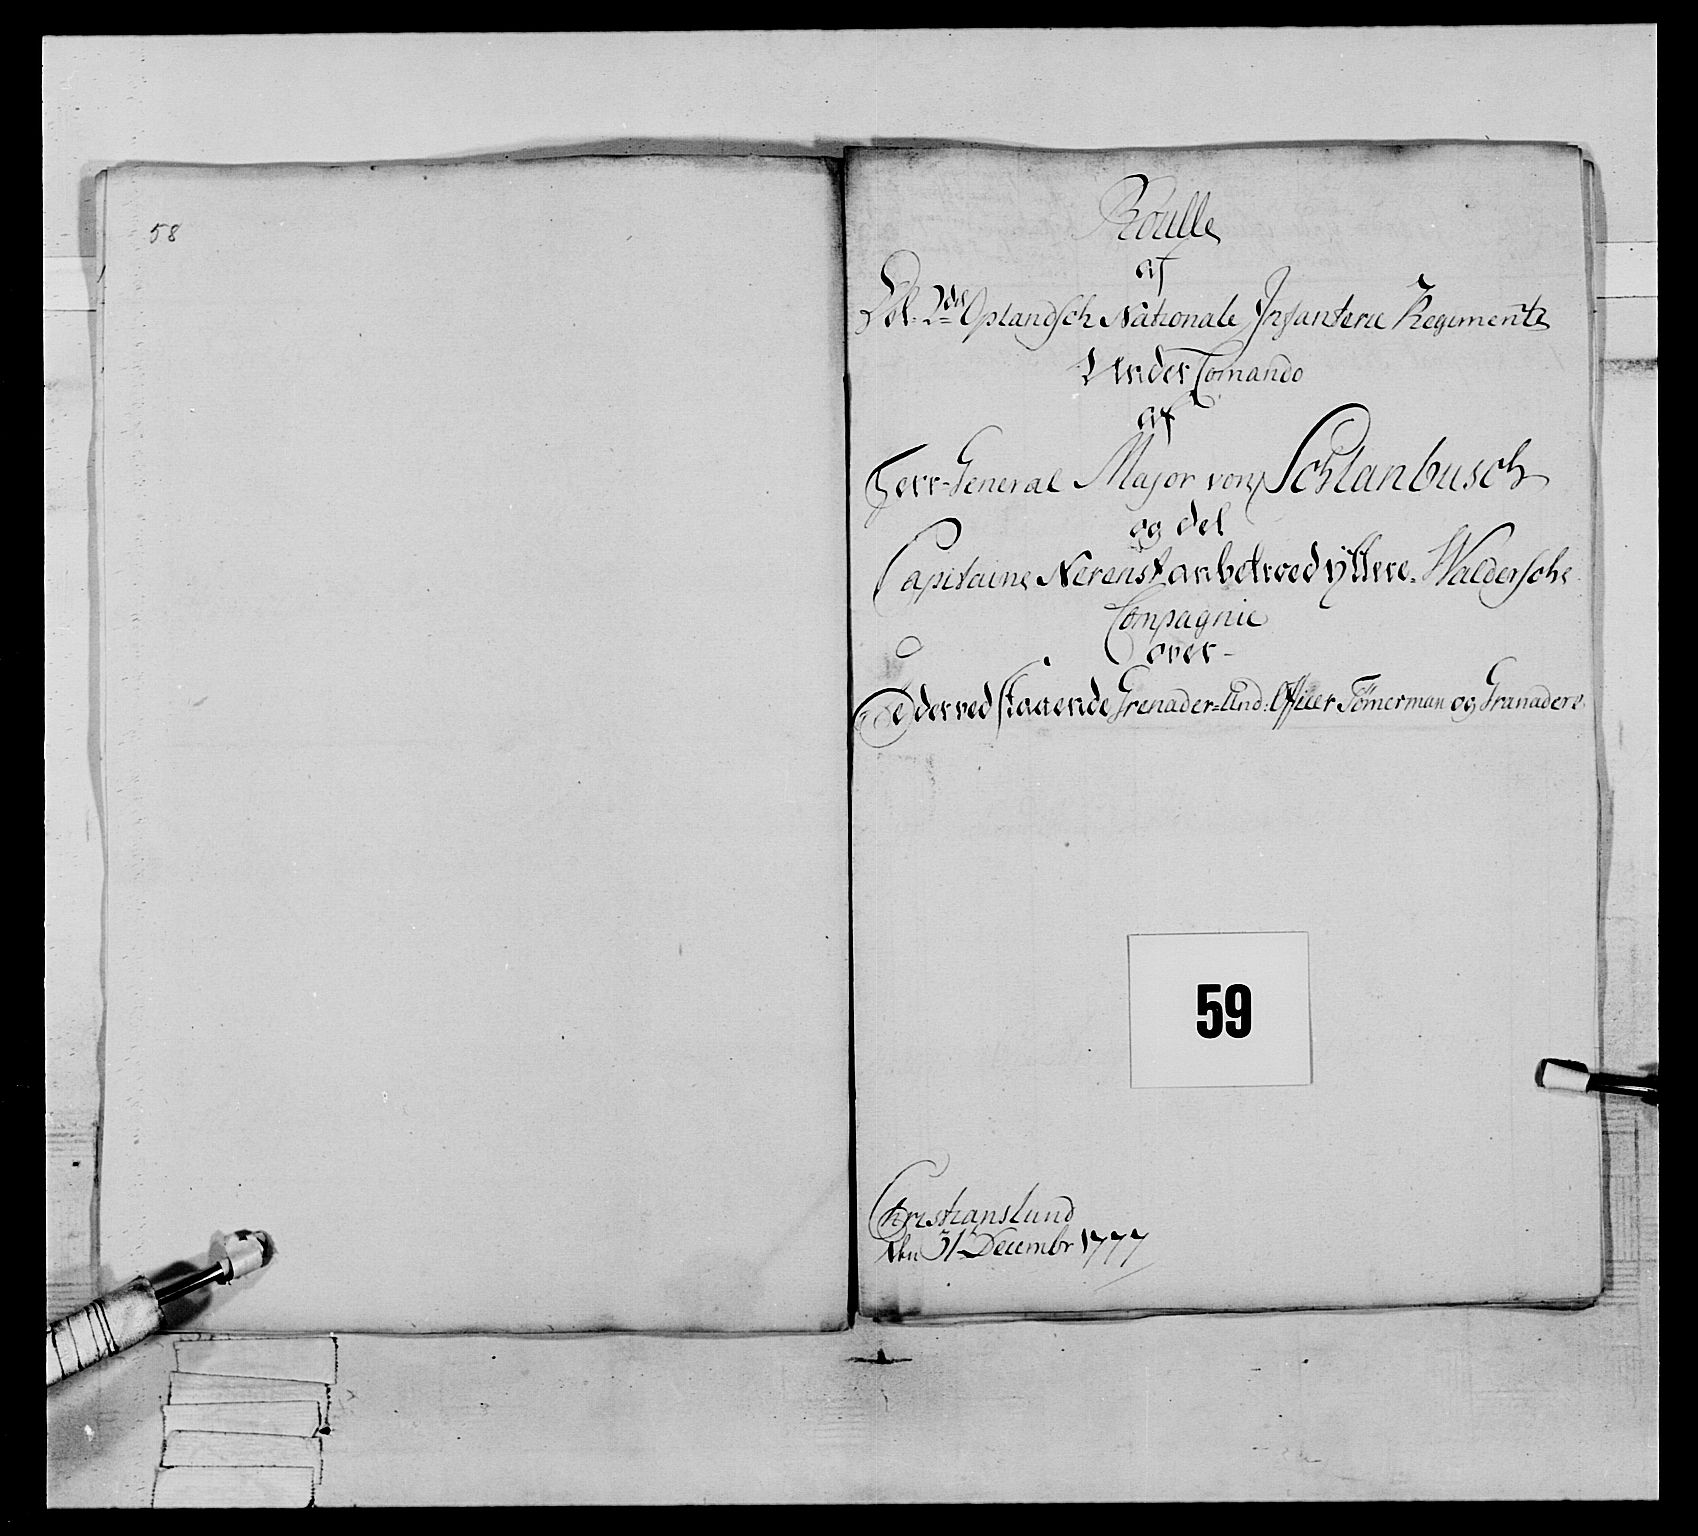 58
Roulle
af
Det 2det Oplandsch Nationale Infanterie Regiments
Under Comando
af
Herr General Major von Schlanbusch
og det
Capitaine Nerenst anbetroed yttere Waldersche
Compagnie
over
De derved staaende Grenader-Und: Officer Tömerman og Granadere
59
Christianslund
den 31 Decembr 1777